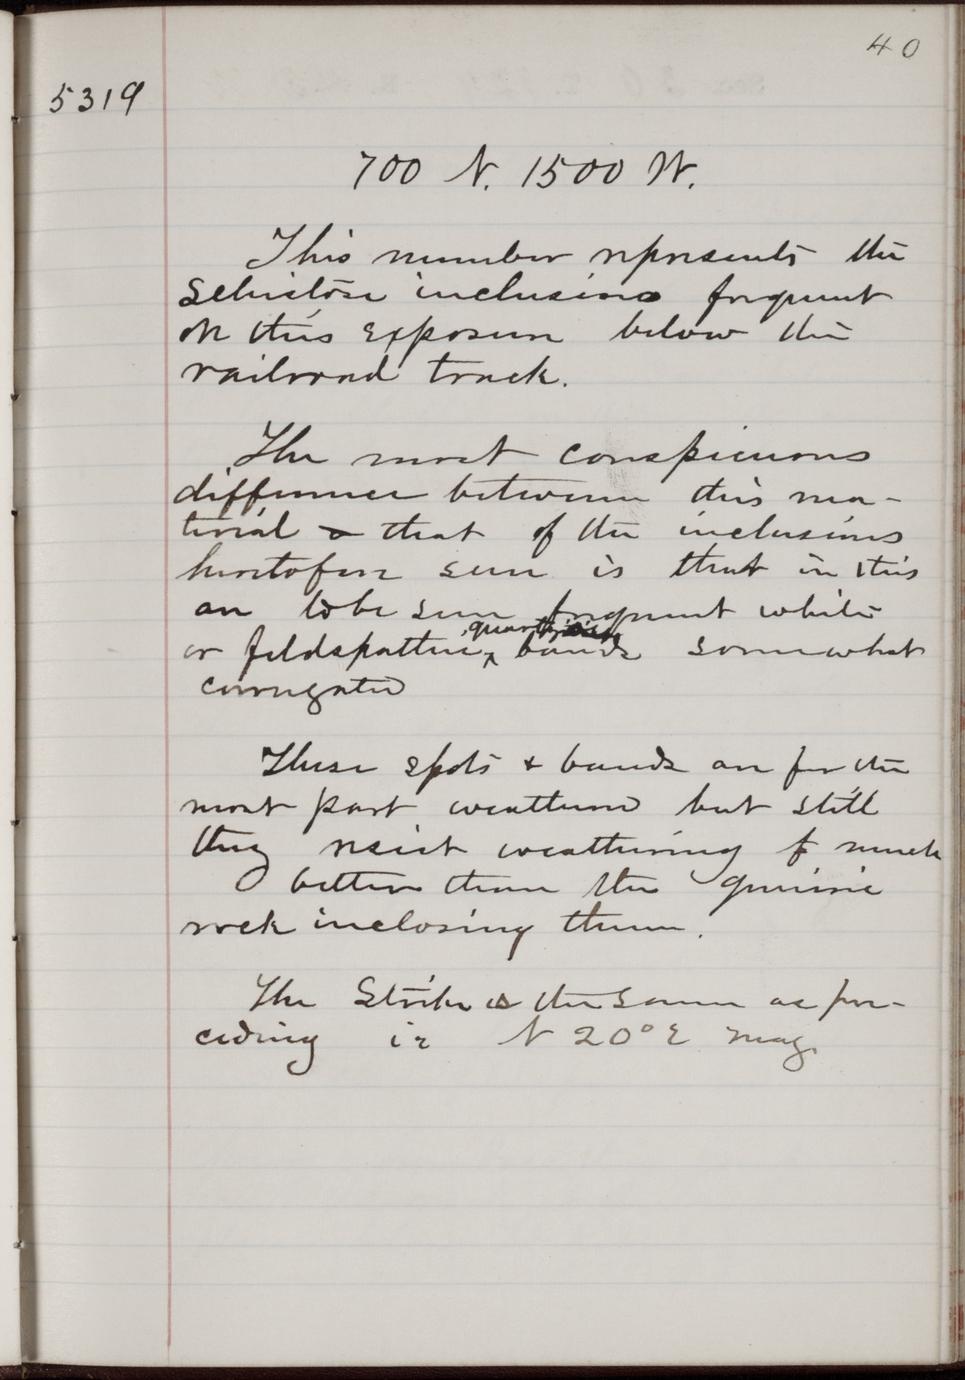 40
5319
700 N. 1500 W.
This number represents the
Schistose inclusions frequent
on this exposure below the
railroad track.
The most conspicuous
difference between this ma-
terial & that of the inclusions
heretofore seen is that in this
are to be seen frequent white
or feldspathic, quartz bands somewhat
corrugated
These spots & bands are for the
most part weathered but still
they resist weathering much
better than the gneissic
rock inclosing them.
The Strike is the same as pre-
ceding ie N 20° E mag.